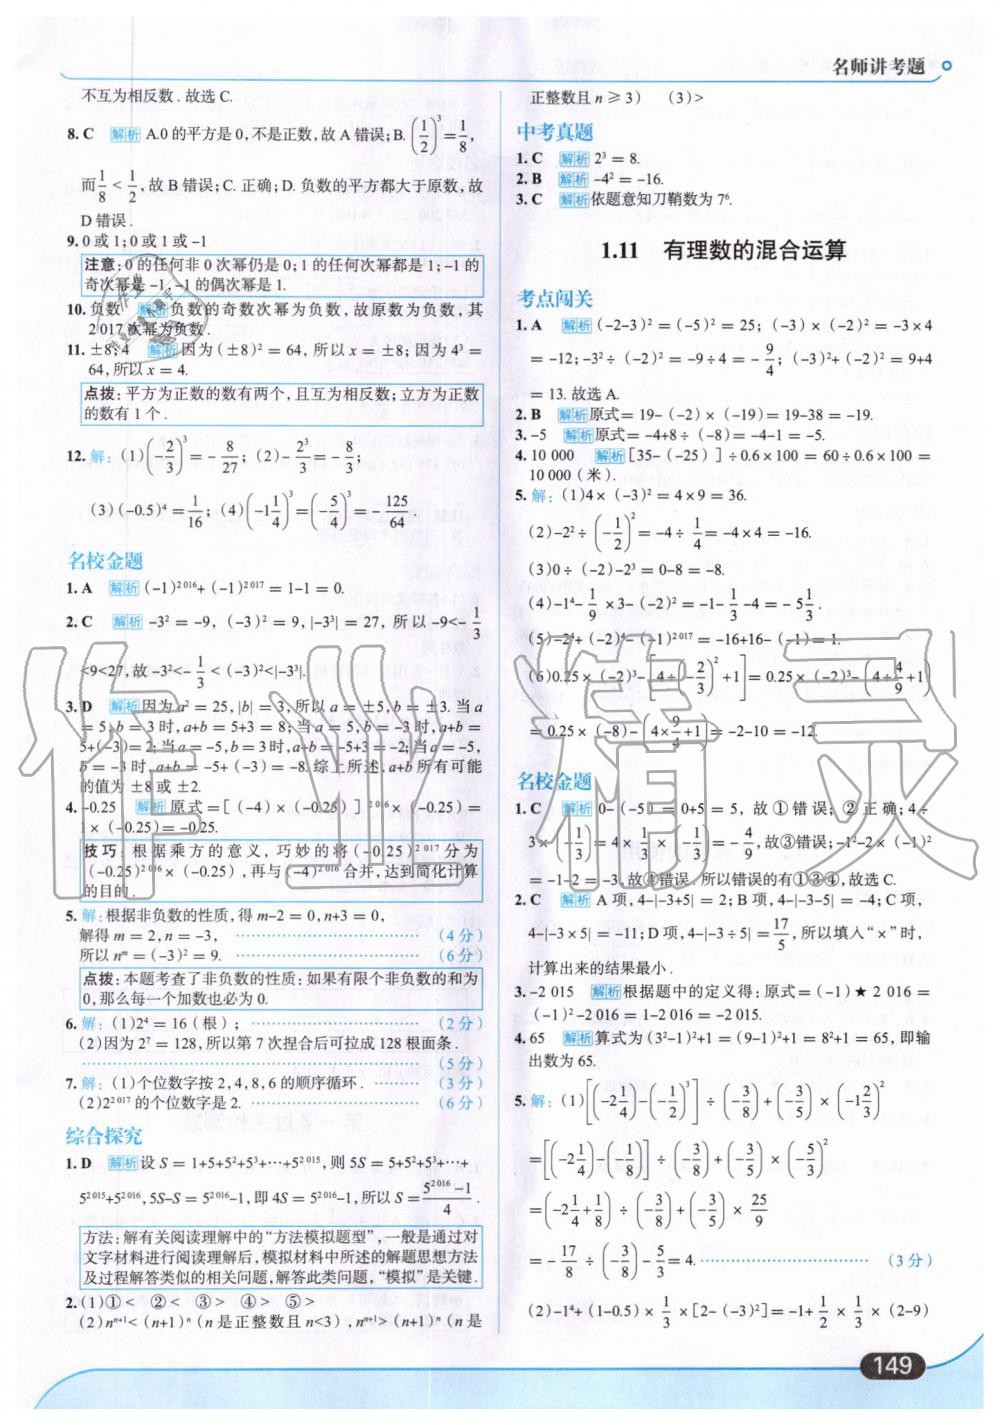 名师讲考题
不互为相反数.故选C.
8. C 解析 A.0的平方是0,不是正数,故A错误;B.(1/2)³=1/8,
而1/8<1/2,故B错误;C.正确;D.负数的平方都大于原数,故
D错误.
9. 0或1;0或1或-1
注意:0的任何非0次幂仍是0;1的任何次幂都是1;-1的
奇次幂是-1,-1的偶次幂是1.
10. 负数 解析 负数的奇数次幂为负数,故原数为负数,其
2017次幂为负数.
11. ±8;4 解析 因为(±8)²=64,所以x=±8;因为4³=
64,所以x=4.
点拨:平方为正数的数有两个,且互为相反数;立方为正数
的数有1个.
12. 解:(1)(-2/3)³=-8/27;(2)-2³/3=-8/3;
(3)(-0.5)⁴=1/16;(4)(-1 1/4)³=(-5/4)³=-125/64
名校金题
1. A 解析 (-1)²⁰¹⁶+(-1)²⁰¹⁷=1-1=0.
2. C 解析 -3²=-9,(-3)²=9,|-3³|=27,所以-9<-1/3
<9<27,故-3²<-1/3<(-3)²<|-3³|.
3. D 解析 因为a²=25,|b|=3,所以a=±5,b=±3.当a
=5,b=3时,a+b=5+3=8;当a=5,b=-3时,a+b=
5+(-3)=2;当a=-5,b=3时,a+b=-5+3=-2;当a=-5,
b=-3时,a+b=-5+(-3)=-8.综上所述,a+b所有可能
的值为±8或±2.
4. -0.25 解析 原式=[(-4)×(-0.25)]²⁰¹⁶×(-0.25)=
1×(-0.25)=-0.25.
技巧:根据乘方的意义,巧妙的将(-0.25)²⁰¹⁷分为
(-0.25)²⁰¹⁶×(-0.25),再与(-4)²⁰¹⁶合并,达到简化计算
的目的.
5. 解:根据非负数的性质,得m-2=0,n+3=0,
解得m=2,n=-3, (4分)
所以nᵐ=(-3)²=9. (6分)
点拨:本题考查了非负数的性质:如果有限个非负数的和为
0,那么每一个加数也必为0.
6. 解:(1)2⁴=16(根); (2分)
(2)因为2⁷=128,所以第7次捏合后可拉成128根面条.
(5分)
7. 解:(1)个位数字按2,4,8,6的顺序循环. (3分)
(2)2²⁰¹⁷的个位数字是2. (6分)
综合探究
1. D 解析 设S=1+5+5²+5³+…+5²⁰¹⁵,则5S=5+5²+5³+…+
5²⁰¹⁵+5²⁰¹⁶,5S-S=5²⁰¹⁶-1,即4S=5²⁰¹⁶-1,所以S=(5²⁰¹⁶-1)/4.
方法:解有关阅读理解中的“方法模拟题型”,一般是通过对
文字材料进行阅读理解后,模拟材料中所述的解题思想方法
及过程解答类似的相关问题,解答此类问题,“模拟”是关键.
2. (1)①< ②< ③> ④> ⑤>
(2)nⁿ⁺¹<(n+1)ⁿ(n是正整数且n<3),nⁿ⁺¹>(n+1)ⁿ(n是
正整数且n≥3) (3)>
中考真题
1. C 解析 2³=8.
2. B 解析 -4²=-16.
3. C 解析 依题意知刀鞘数为7⁶.
1.11 有理数的混合运算
考点闯关
1. A 解析 (-2-3)²=(-5)²=25;(-3)×(-2)²=-3×4
=-12;-3²÷(-2)²=-9÷4=-9/4;(-3)²+(-2)²=9+4
=13.故选A.
2. B 解析 原式=19-(-2)×(-19)=19-38=-19.
3. -5 解析 原式=-4+8÷(-8)=-4-1=-5.
4. 10 000 解析 [35-(-25)]÷0.6×100=60÷0.6×100=
10 000(米).
5. 解:(1)4×(-3)²=4×9=36.
(2)-2²÷(-1/2)²=-4÷1/4=-4×4=-16.
(3)0÷(-2)-2³=0-8=-8.
(4)-1⁴-1/9×3-(-2)²=-1-1/3-4=-5 1/3.
(5)-2⁴+(-2)⁴-(-1)²⁰¹⁷=-16+16-(-1)=1.
(6)0.25×(-2)³-[4÷(-2/3)²+1]=0.25×(-2)³-(4÷4/9+1)
=0.25×(-8)-(4×9/4+1)=-2-10=-12.
名校金题
1. C 解析 0-(-5)=0+5=5,故①错误;②正确;4÷
3×(-1/3)=4×1/3×(-1/3)=-4/9,故③错误;-1²-2×(-1)²
=-1-2=-3,故④错误.所以错误的有①③④,故选C.
2. C 解析 A项,4-|-3+5|=2;B项,4-|-3-5|=-4;C项,
4-|-3×5|=-11;D项,4-|-3÷5|=17/5,所以填入“×”时,
计算出来的结果最小.
3. -2 015 解析 根据题中的定义得:原式=(-1)★2 016=
(-1)²-2 016=1-2 016=-2 015.
4. 65 解析 算式为(3²-1)²+1=(9-1)²+1=8²+1=65,即输
出数为65.
5. 解:(1)[(-2 1/4)-(-1/2)³]÷(-3/8)+(-3/5)×(-1 2/3)²
=[(-2 1/4)-(-1/8)]÷(-3/8)+(-3/5)×(-5/3)²
=(-2 1/4+1/8)÷(-3/8)+(-3/5)×25/9
=-17/8÷(-3/8)-5/3=4. (3分)
(2)-1⁴+(1-0.5)×1/3×[2-(-3)²]=-1+1/2×1/3×(2-9)
149
作业精灵